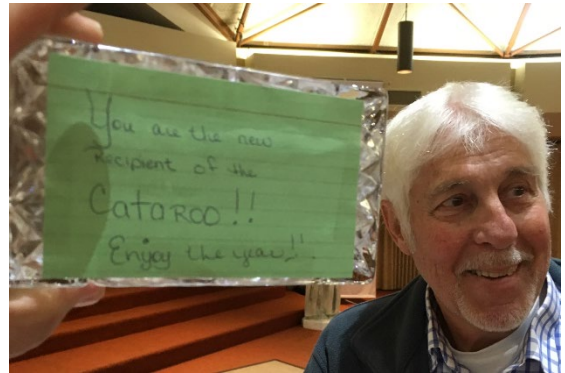 You are the new
Recipient of the
CataRoo!!
Enjoy the year!!.